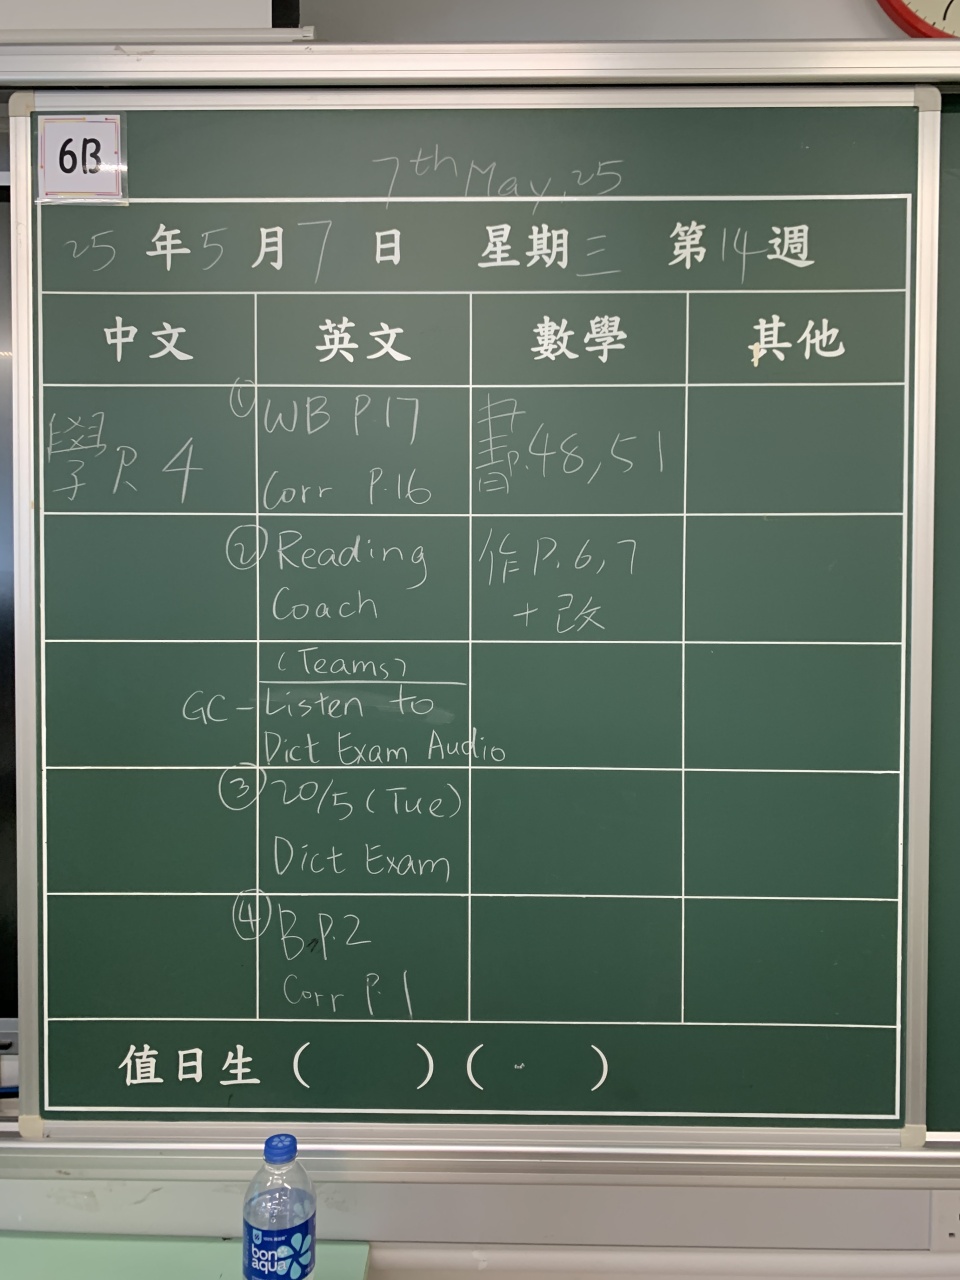 6B
7th May, 25
25 年 5 月 7 日 星期 三 第 14 週
中文 英文 數學 其他
學 P. 4
① WB P.17
Corr P.16
書 P.48, 51
② Reading
Coach
作 P.6, 7
+ 改
(Teams)
GC - Listen to
Dict Exam Audio
③ 20/5 (Tue)
Dict Exam
④ B, P.2
Corr P.1
值日生 ( ) ( )
bon
aqua